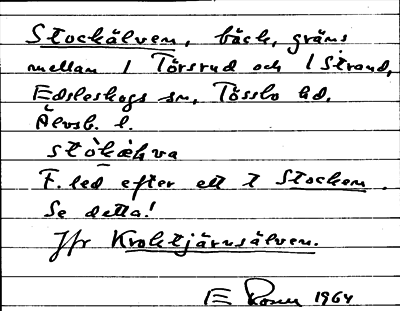 Stockälven, bäck, gräns
mellan 1 Törsrud och 1 Strand,
Edsleskogs sn, Tössbo hd,
Älvsb. l.
F. led efter ett t Stocken.
Se detta!
Jfr Kroktjärnsälven.
E 1964